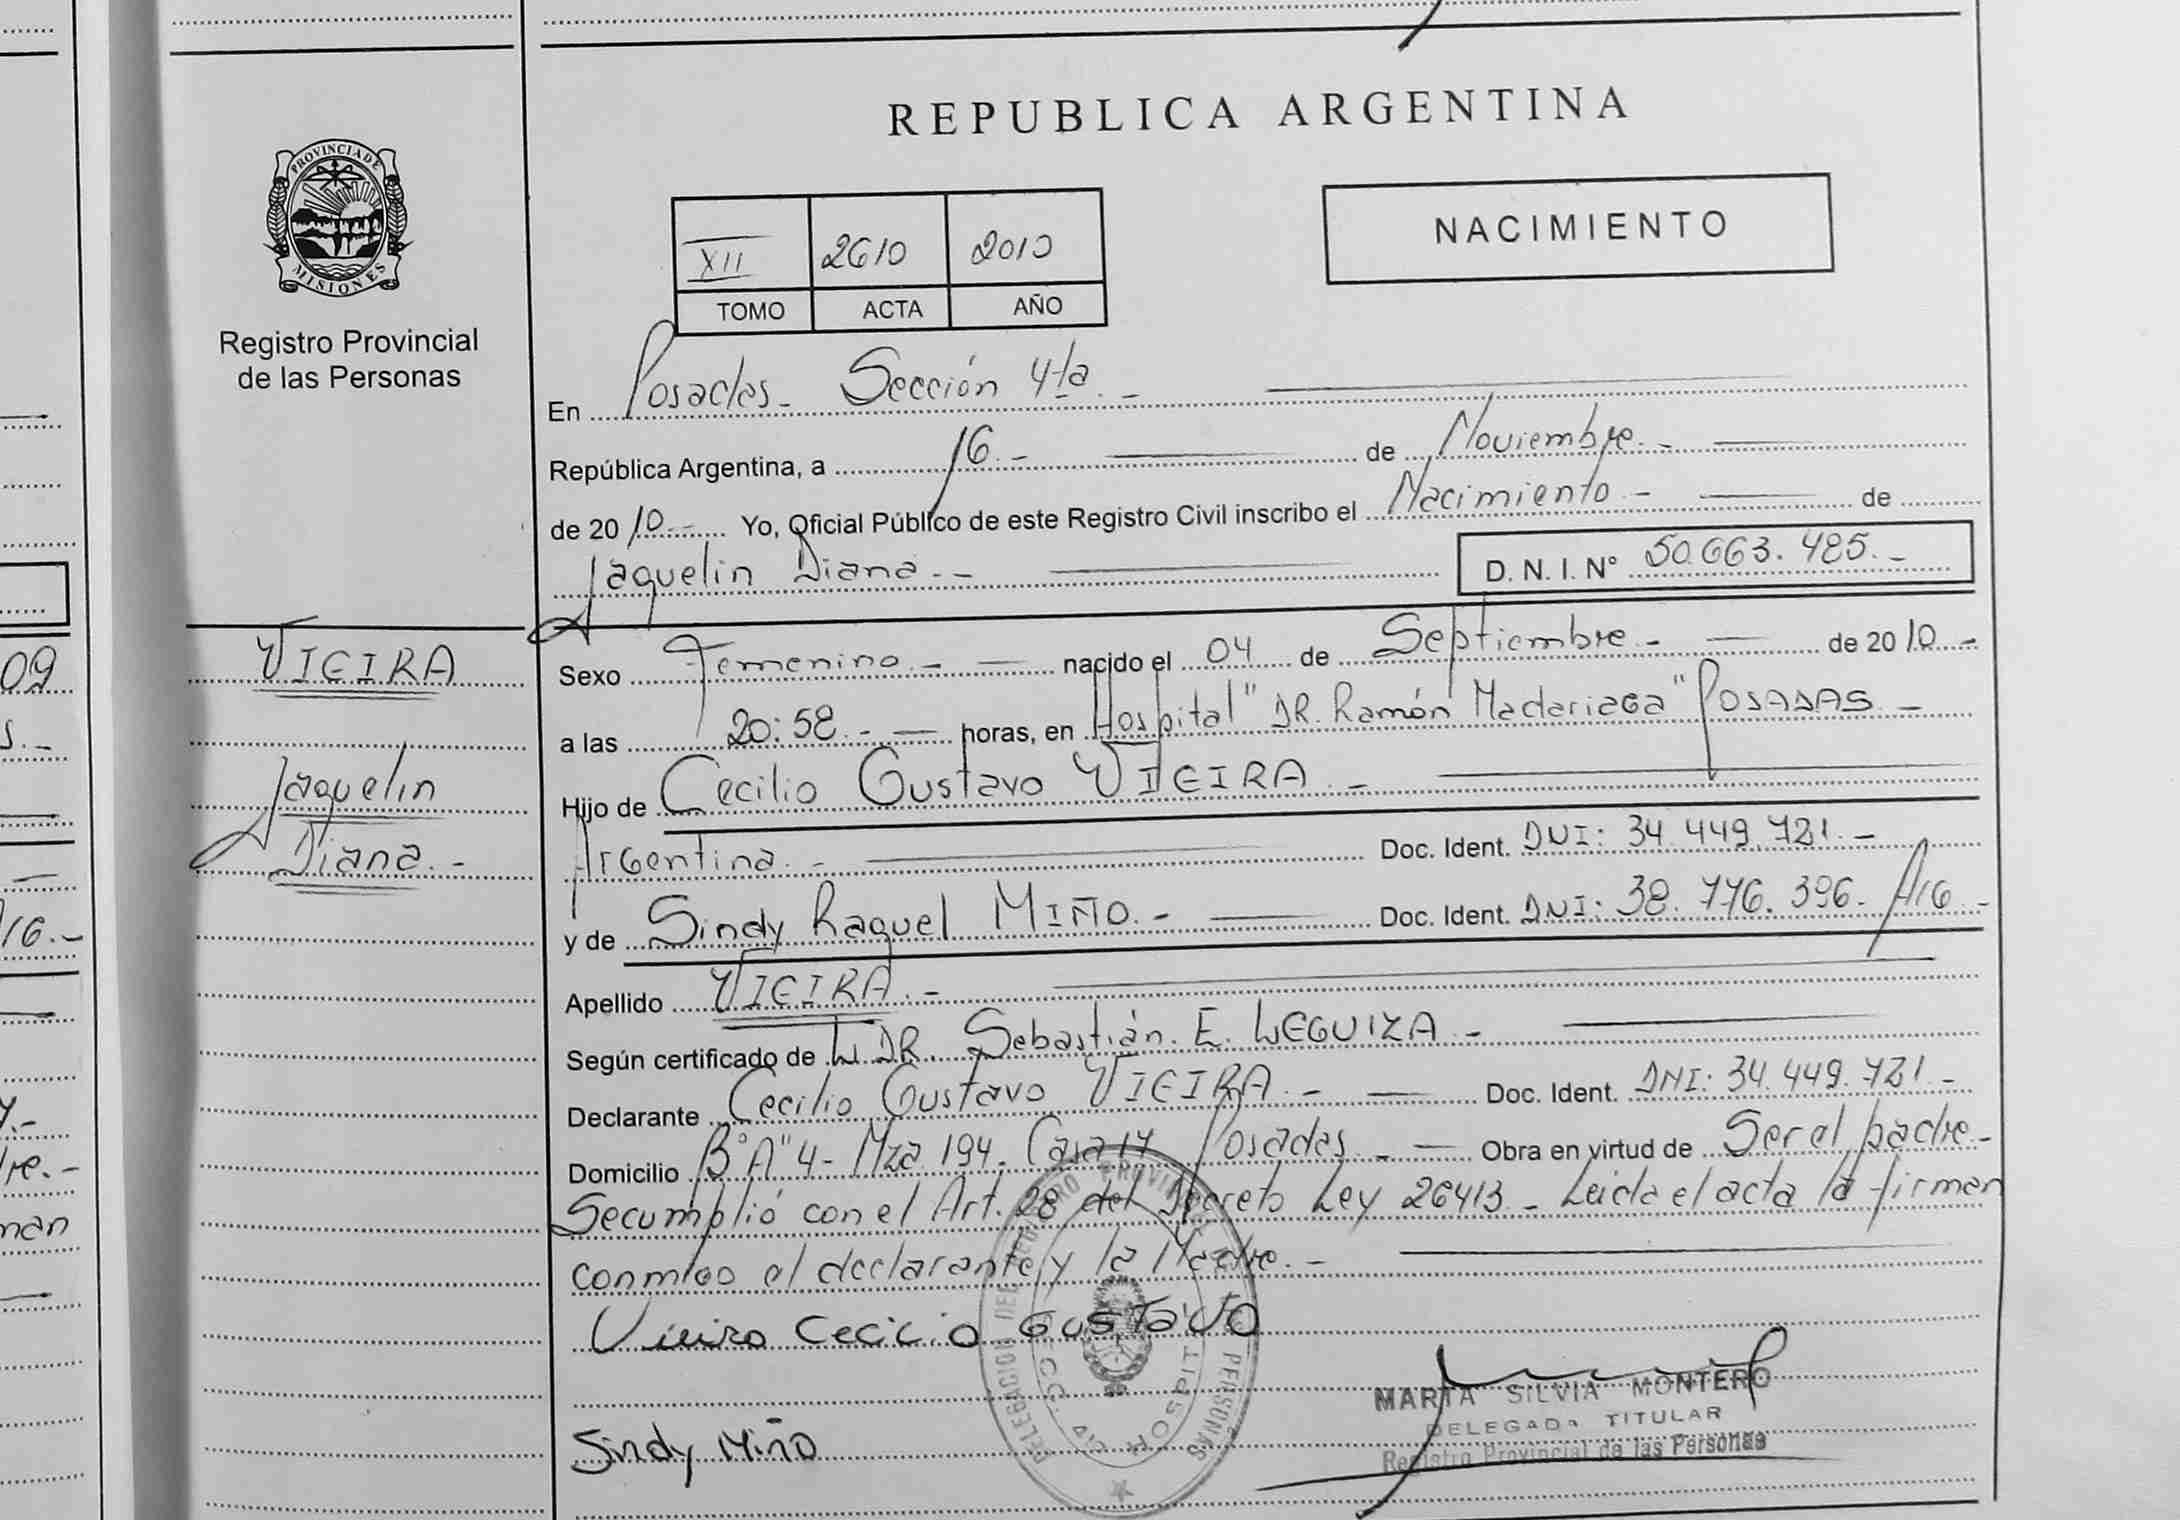 REPUBLICA ARGENTINA
PROVINCIA DE
MISIONES
Registro Provincial
de las Personas
NACIMIENTO
XII 2610 2010
TOMO ACTA AÑO
En Posadas- Sección 4ta.-
República Argentina, a 16.- de Noviembre.-
de 20 10.- Yo, Oficial Público de este Registro Civil inscribo el Nacimiento.- de
Jaquelin Diana.-- D. N. I. Nº 50.663.485.-
VIEIRA
Jaquelin
Diana.-
Sexo Femenino.- nacido el 04 de Septiembre.- de 20 10.-
a las 20:58.- horas, en Hospital "DR. Ramón Madariaga" POSADAS.-
Hijo de Cecilio Gustavo VIEIRA.-
Argentina.- Doc. Ident. DNI: 34.449.721.-
y de Sindy Raquel MIÑO.- Doc. Ident. DNI: 38.776.396.- Arg.-
Apellido VIEIRA.-
Según certificado de DR. Sebastián. E. LEGUIZA.-
Declarante Cecilio Gustavo VIEIRA.- Doc. Ident. DNI: 34.449.721.-
Domicilio Bº A"4- Mza 194. Casa 17 Posadas.- Obra en virtud de Ser el padre.-
Se cumplió con el Art. 28 del Decreto Ley 26413- Leida el acta la firman
conmigo el declarante y la Madre.-
Vieira Cecilio GUSTAVO
Sindy Miño
MARTA SILVIA MONTERO
DELEGADA TITULAR
Registro Provincial de las Personas
09